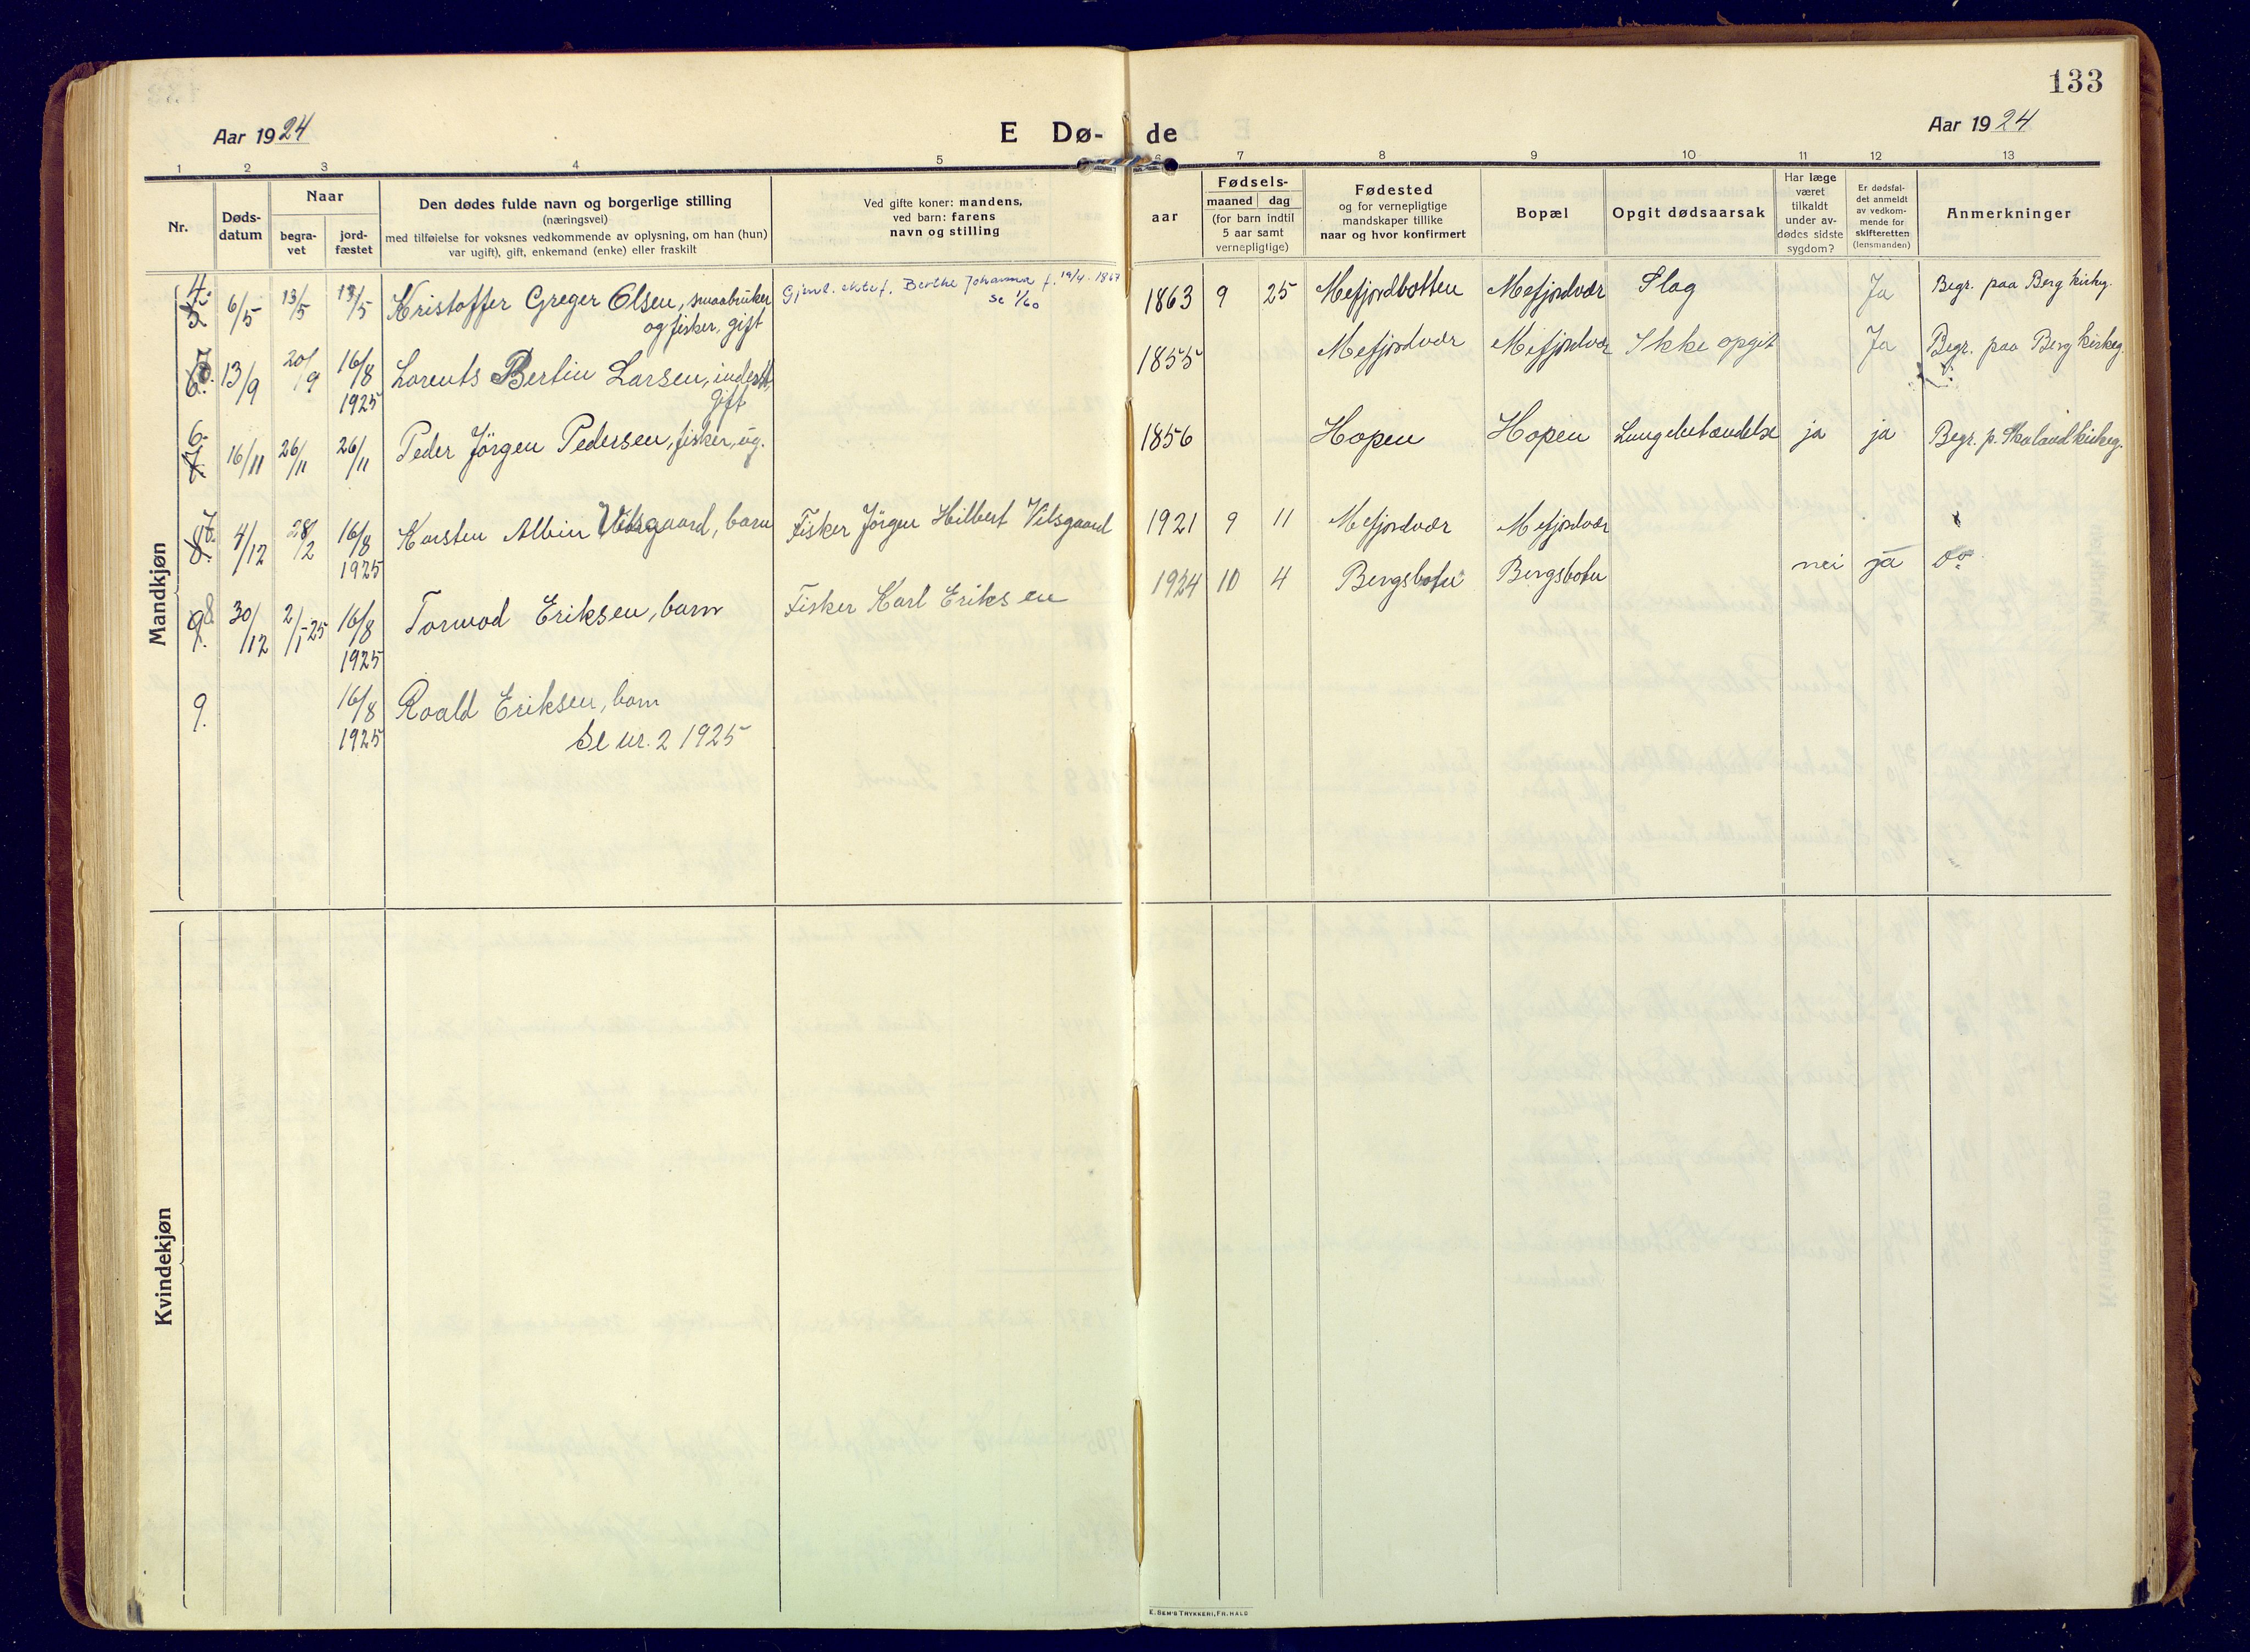 133
Aar 1924
E Dø- de
Aar 1924
1 2 3 4 5 6 7 8 9 10 11 12 13
Nr.
Døds-
datum
Naar
begra-
vet
jord-
fæstet
Den dødes fulde navn og borgerlige stilling
(næringsvei)
med tilføielse for voksnes vedkommende av oplysning, om han (hun)
var ugift), gift, enkemand (enke) eller fraskilt
Ved gifte koner: mandens,
ved barn: farens
navn og stilling
aar
Fødsels-
maaned dag
(for barn indtil
5 aar samt
vernepligtige)
Fødested
og for vernepligtige
mandskaper tillike
naar og hvor konfirmert
Bopæl
Opgit dødsaarsak
Har læge
været
tilkaldt
under av-
dødes sidste
sygdom?
Er dødsfal-
det anmeldt
av vedkom-
mende for
skifteretten
(lensmanden)
Anmerkninger
Mandkjøn
4. 6/5 13/5 13/5 Kristoffer Greger Olsen, smaabruker
og fisker, gift
Gjenl. ektef. Berthe Johanna f. 19/4-1867
Se 1/60
1863 9 25 Mefjordbotten Mefjordvær Slag Ja Begr. paa Berg kirkeg.
13/9 20/9 16/8
1925
Lorents Bertin Larsen, inderst,
gift
1855 Mefjordvær Mefjordvær Ikke opgit Ja Begr. paa Berg kirkeg.
6. 16/11 26/11 26/11 Peder Jörgen Pedersen, fisker, ug.
1856 Hopen Hopen Lungebetændelse ja ja Begr. p. Skaland kirkeg.
7. 4/12 28/2 16/8
1925
Karsten Albin Vilsgaard, barn Fisker Jörgen Hilbert Vilsgaard
1921 9 11 Mefjordvær Mefjordvær
8. 30/12 2/1-25 16/8
1925
Tormod Eriksen, barn Fisker Karl Eriksen
1924 10 4 Bergsbotn Bergsbotn nei ja do
9. 16/8
1925
Roald Eriksen, barn
Se nr. 2 1925
Kvindekjøn
E. SEM'S TRYKKERI, FR. HALD